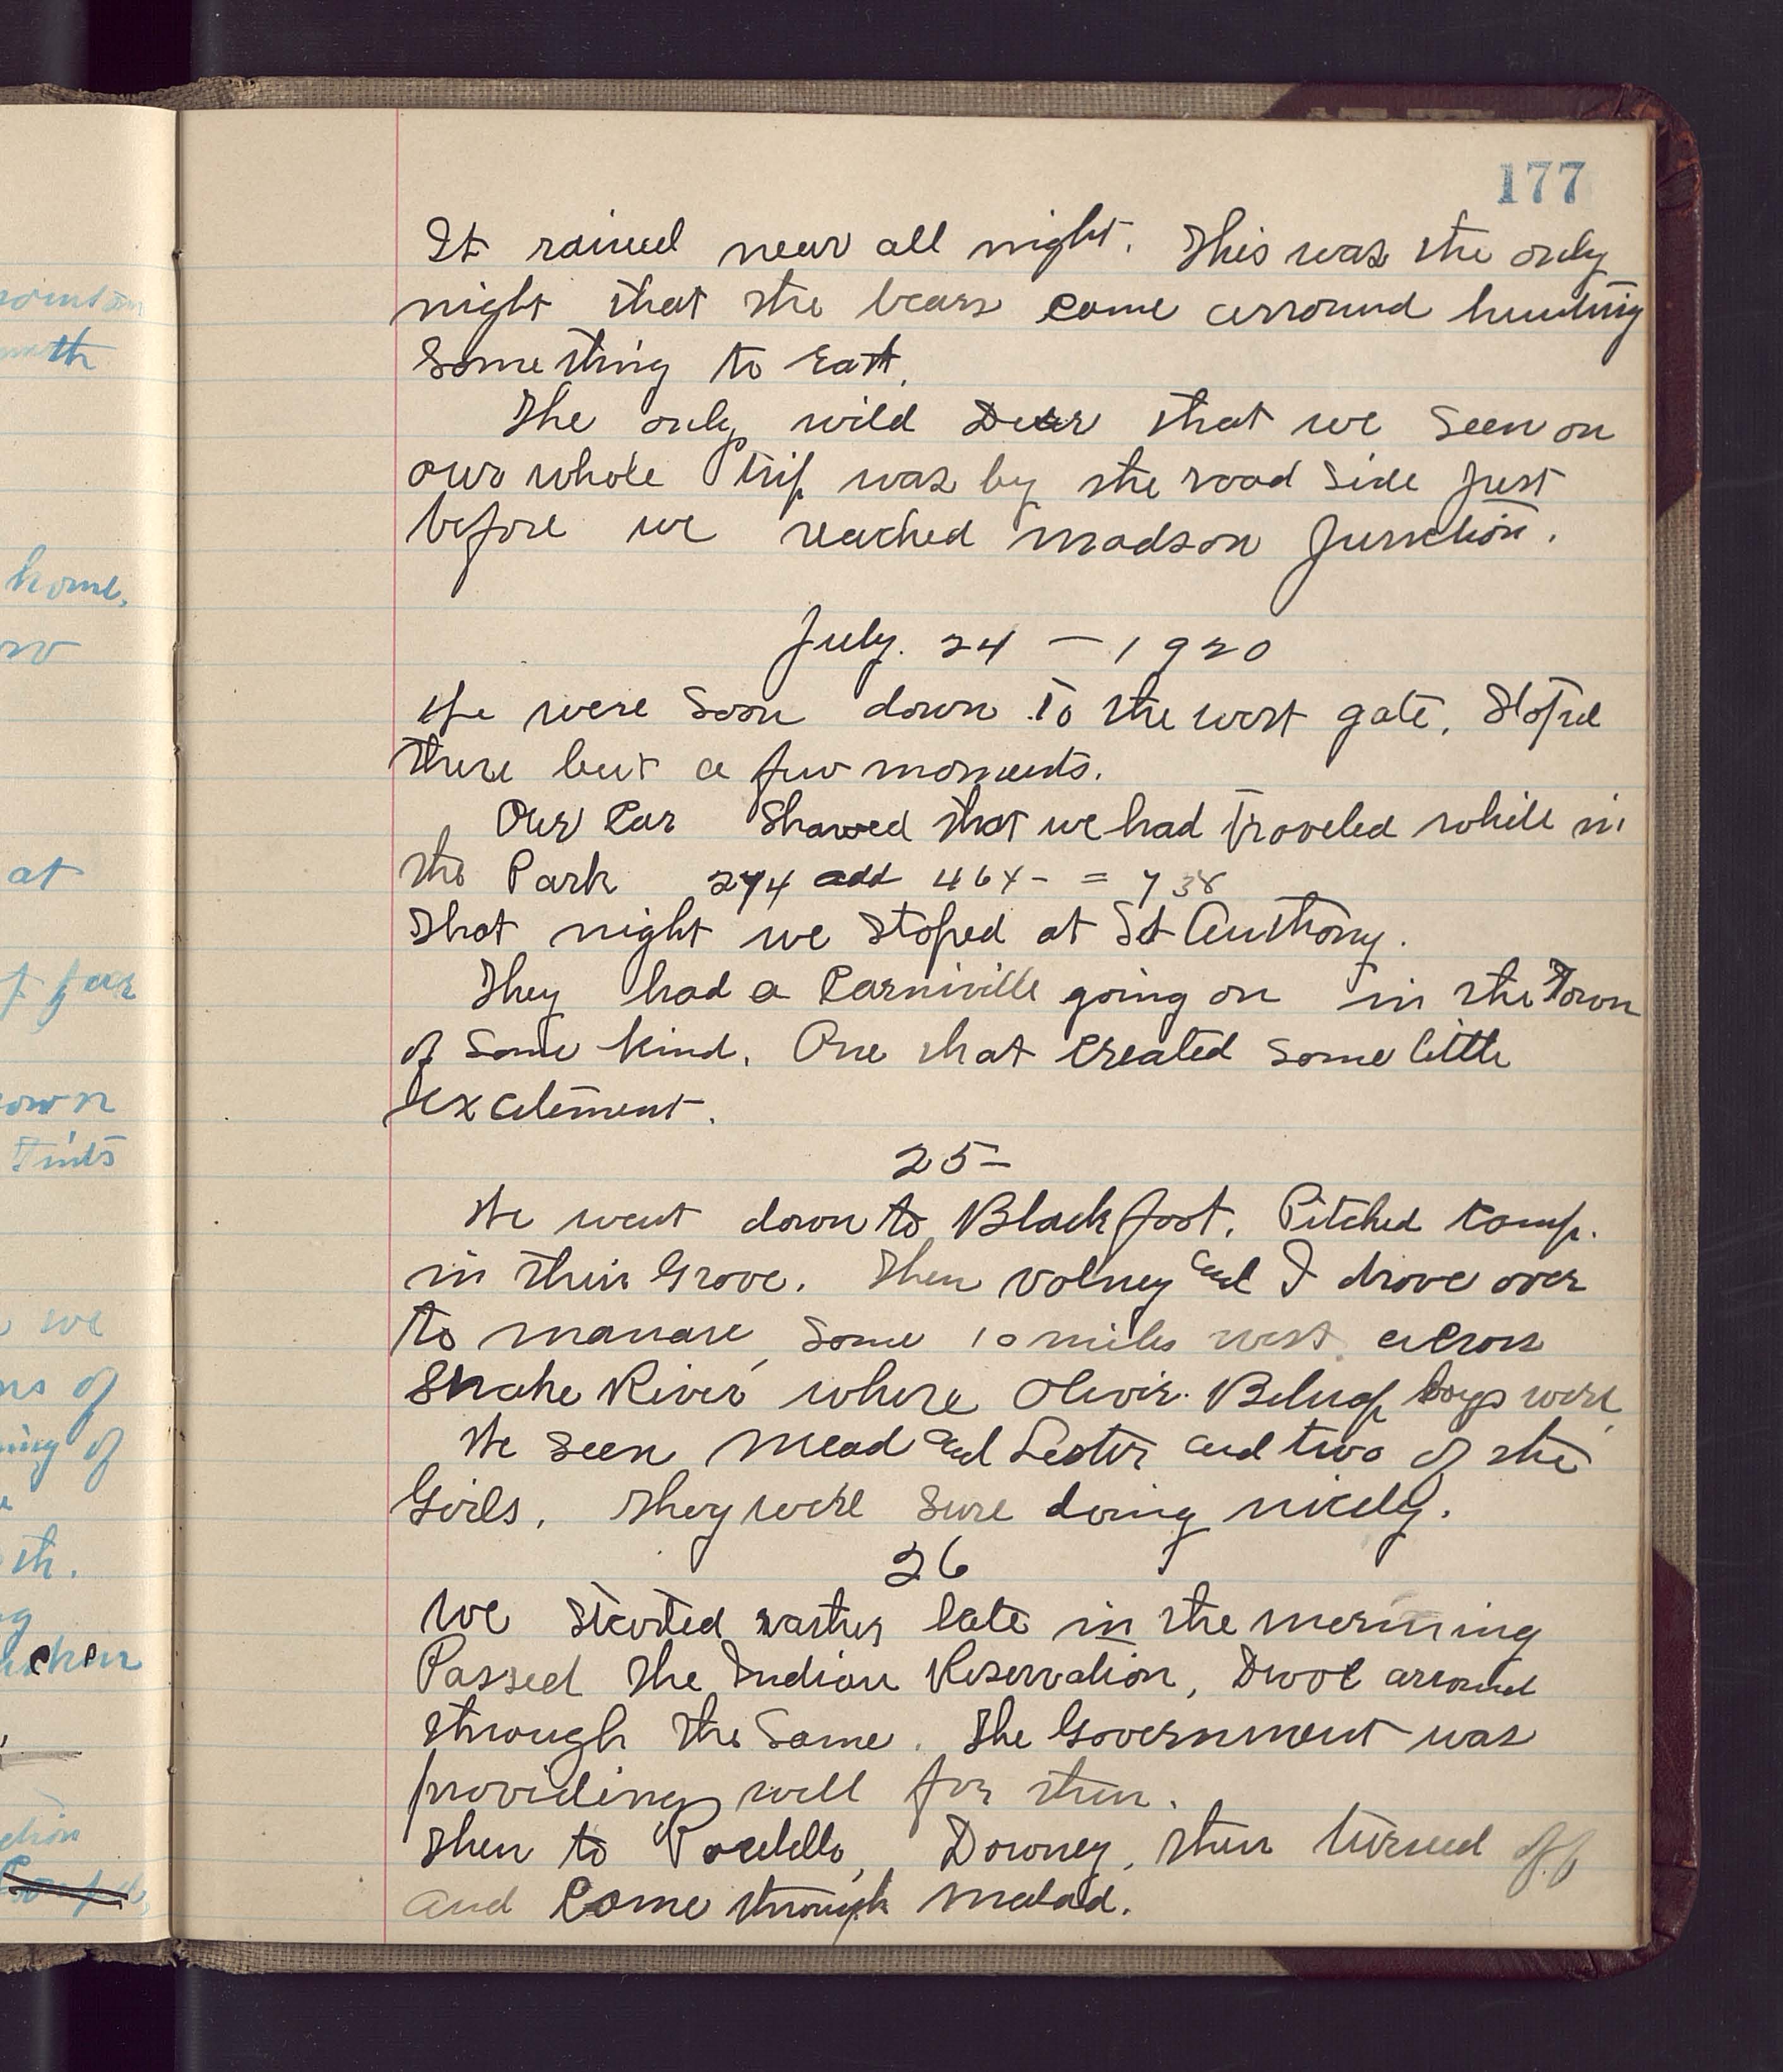 177
It rained near all night. This was the only
night that the bears come arround hunting
Something to Eat.
The only wild Deer that we Seen on
our whole trip was by the road Side Just
before we reached Madson Junction.
July. 24 — 1920
We were Soon down to the west gate. Stoped
there but a few moments.
Our Car Showed that we had traveled while in
the Park 274 add 464- = 738
That night we Stoped at St Anthony.
They had a Carniville going on in the Town
of Some kind. One that Created Some little
Excitement.
25-
We went down to Blackfoot. Pitched Camp.
in their Grove. Then Volney and I drove over
to some 10 miles west across
Snake River where Oliver boys were
We Seen Mead and Lester and two of the
Girls. They were Sure doing nicely.
26
We Started rather late in the morning
Passed the Indian Reservation, Drove arround
through the Same. The Government was
providing well for them.
Then to Pocatello, Downey, then turned off
and Come through Malad.
home.
at
we
of